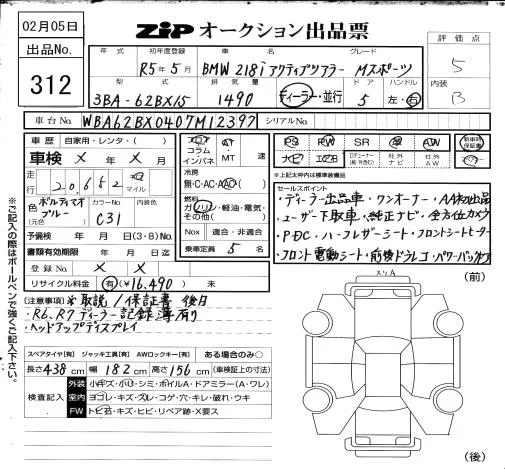 02月05日
出品No.
312
ZIP オークション出品票
評価点
5
内装
B
年式 初年度登録 車名 グレード
R5年5月 BMW 218i アクティブツアラー Mスポーツ
型式 排気量 ドア ハンドル
3BA-62BX15 1490 ディーラー・並行 5 左・右
車台No. WBA62BX0407M12397 シリアルNo.
車歴 自家用・レンタ・( )
車検 × 年 × 月
走行 20,652 km マイル
色 (元色) ボルティマオブルー カラーNo. C31 内装色
予備検 年 月 日(3・8)No.
書類有効期限 年 月 日
登録No. × ×
リサイクル料金 有(¥16,490) 未
フロア コラム インパネ AT MT 速
冷房 無・C・AC・AAC
燃料 ガソリン・軽油・電気・その他( )
Nox 適合・非適合
乗車定員 5名
PS PW SR 革 AW 新車時保証書
ナビ エアB Dチューナー(純・社外) 社外ナビ 社外AW
※上記太枠内は標準装備品
セールスポイント
・ディーラー出品車・ワンオーナー・AA初出品
・ユーザー下取車・純正ナビ・全方位カメラ
・PDC・ハーフレザーシート・フロントシートヒーター
・フロント電動シート・前後ドラレコ・パワーバックドア
[注意事項] ※取説/保証書 後日
・R6、R7 ディーラー記録簿有り
・ヘッドアップディスプレイ
スペアタイヤ[有] ジャッキ工具[有] AWロックキー[有] ある場合のみ○
長さ438cm 幅182cm 高さ156cm (車検証上の寸法)
検査記入
外装 小キズ・小U・シミ・ボイルA・ドアミラー(A・ワレ)
室内 ヨゴレ・キズ・スレ・コゲ・穴・キレ・破れ・ウキ
FW トビ石・キズ・ヒビ・リペア跡・X要ス
スリA
(前)
(後)
※ご記入の際はボールペンで強くご記入下さい。